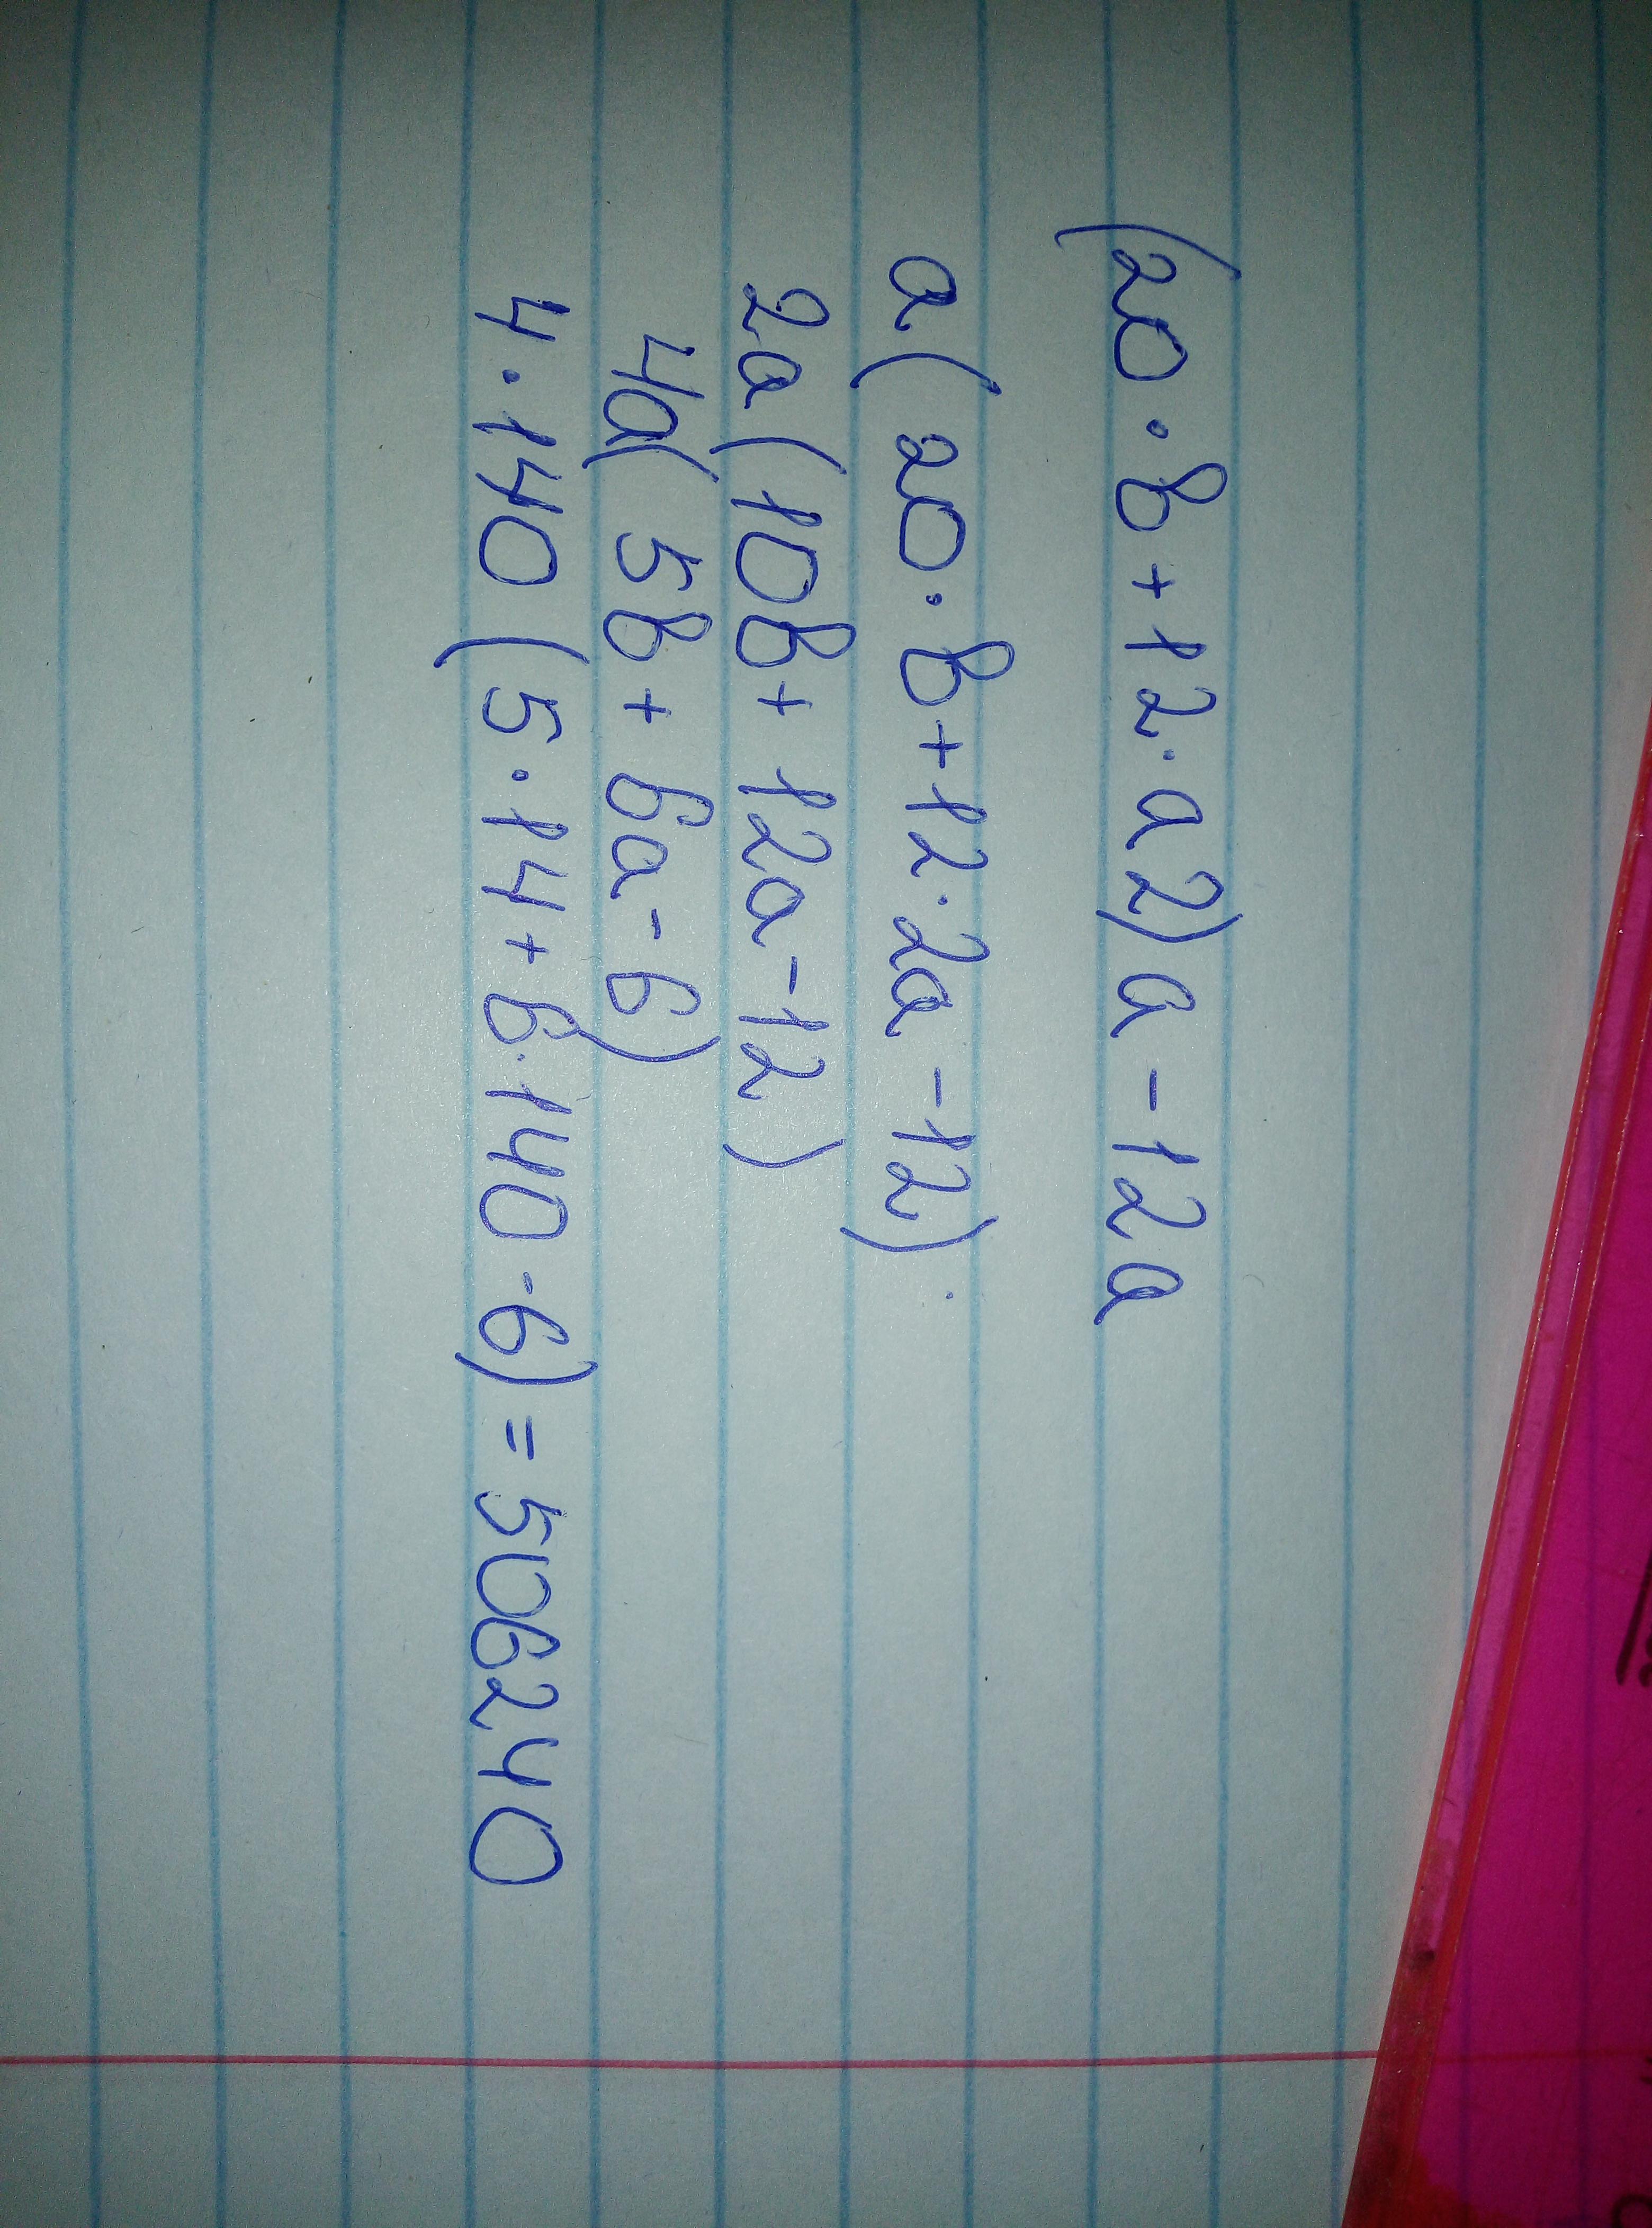 (20·b+12·a2)a-12a
a(20·b+12·2a-12)
2a(10b+12a-12)
4a(5b+6a-6)
4·140(5·14+6·140-6)=506240